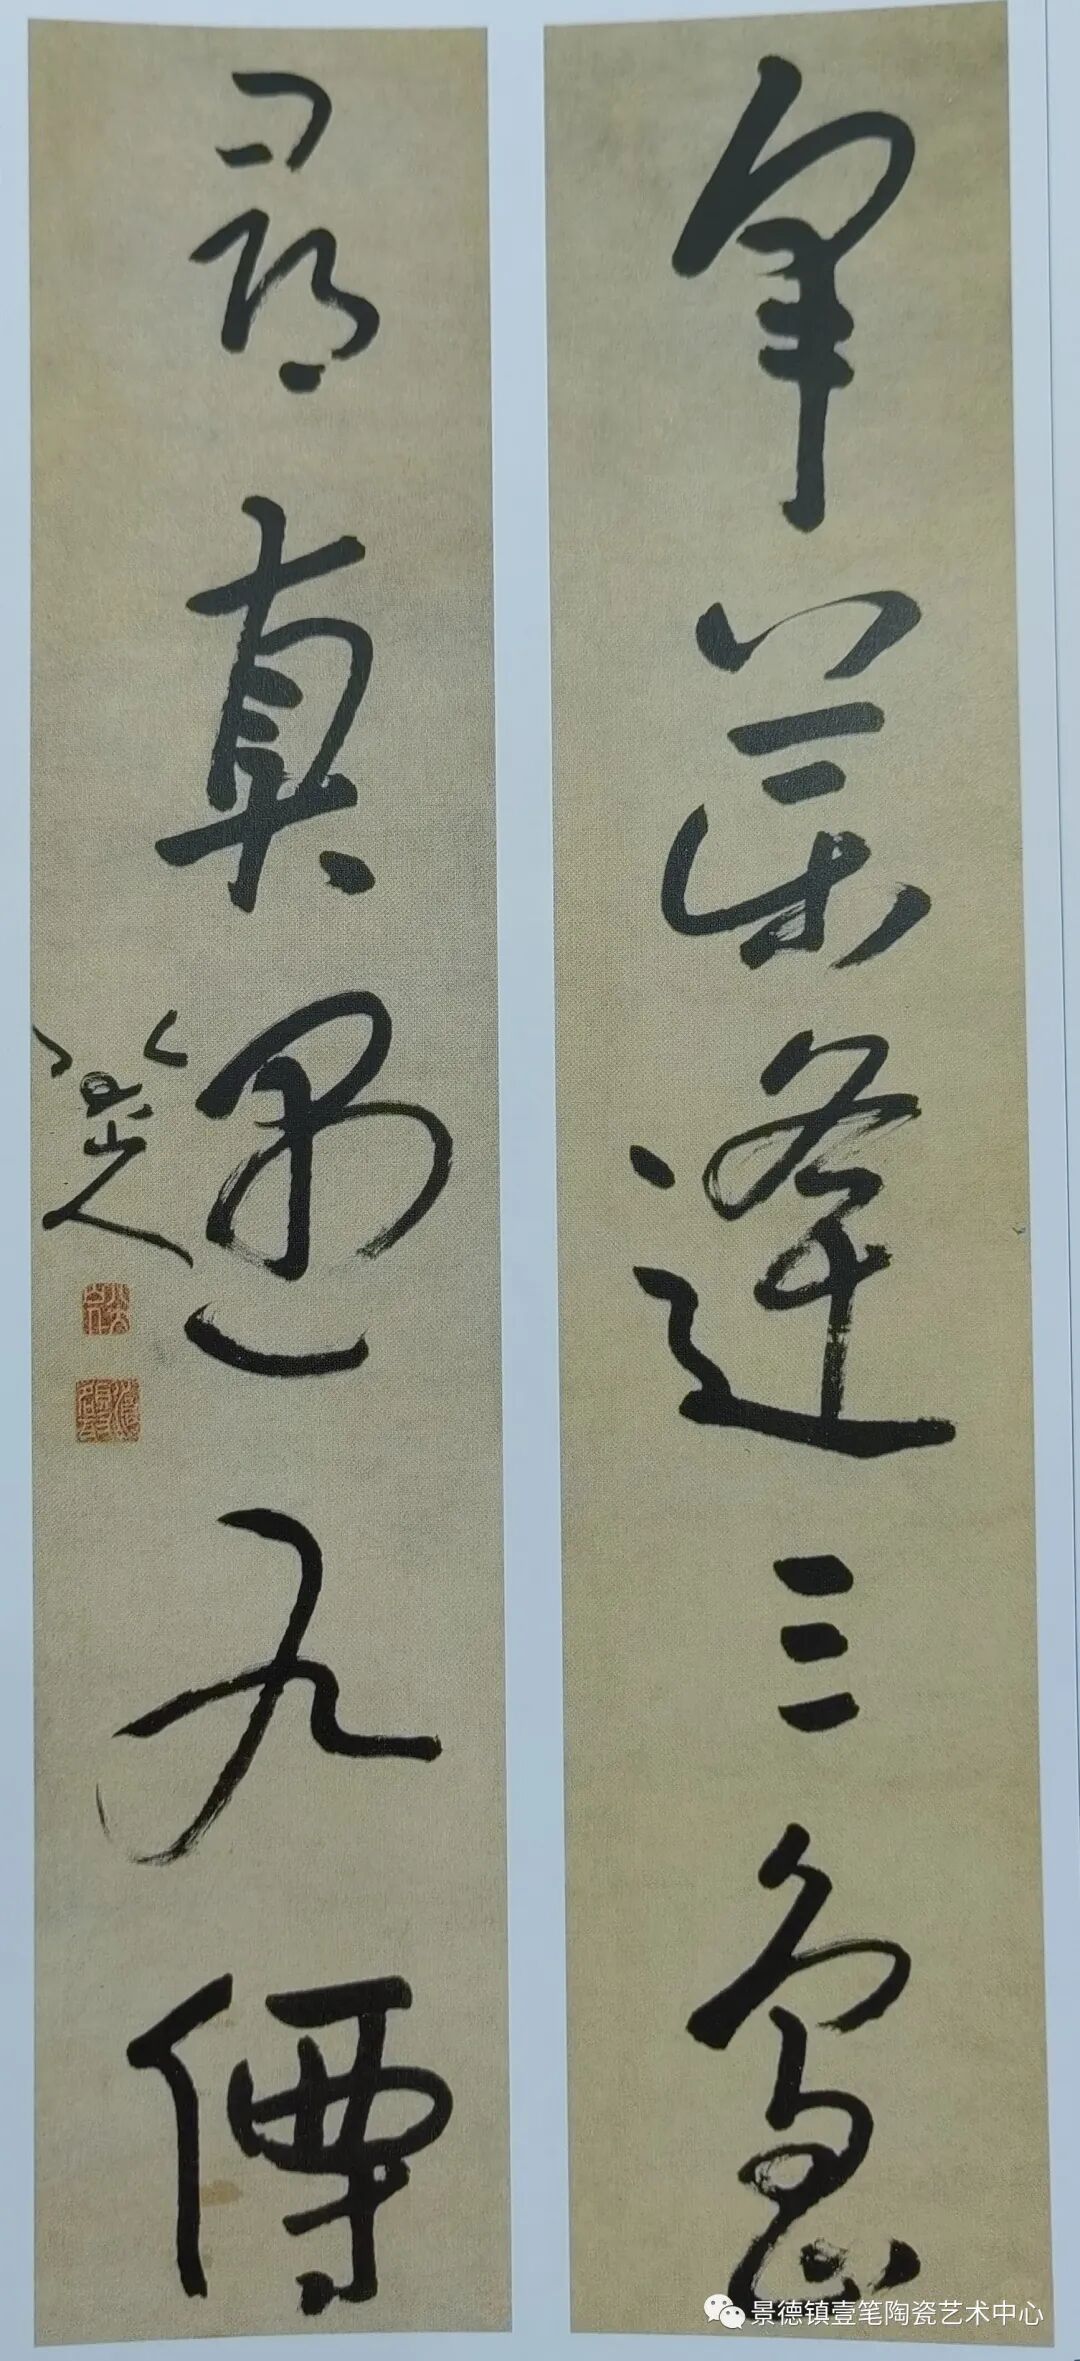 采藥逢三島
尋真遇九僊
八大山人
景德镇壹笔陶瓷艺术中心